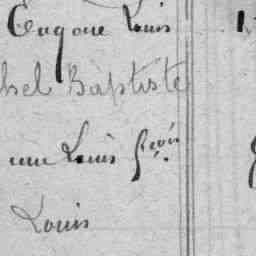 Eugène Louis
hel Baptiste
Louis Fçois
Louis